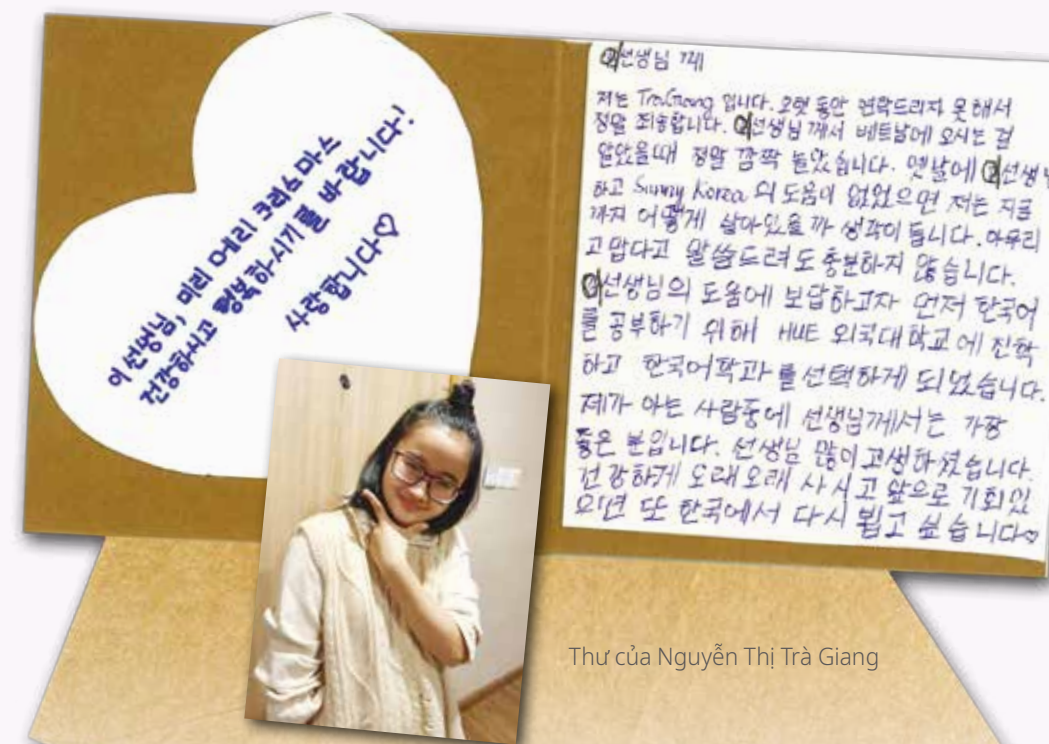 이선생님, 미리 메리 크리스마스
건강하시고 행복하시기를 바랍니다!
사랑합니다♡
이선생님 께
저는 TraGiang 입니다. 오랫 동안 연락드리지 못 해서
정말 죄송합니다. 이선생님 께서 베트남에 오시는 걸
알았을때 정말 깜짝 놀았습니다. 옛날에 이선생님
하고 Sunny Korea 의 도움이 없었으면 저는 지금
까지 어떻게 살아있을까 생각이 듭니다. 아무리
고맙다고 말씀드려도 충분하지 않습니다.
이선생님의 도움에 보답하고자 먼저 한국어
를 공부하기 위해 HUE 외국대학교에 진학
하고 한국어학과를 선택하게 되었습니다.
제가 아는 사람중에 선생님께서는 가장
좋은 분입니다. 선생님 많이 고생하셨습니다.
건강하게 오래오래 사시고 앞으로 기회있
으면 또 한국에서 다시 뵙고 싶습니다♡
Thư của Nguyễn Thị Trà Giang